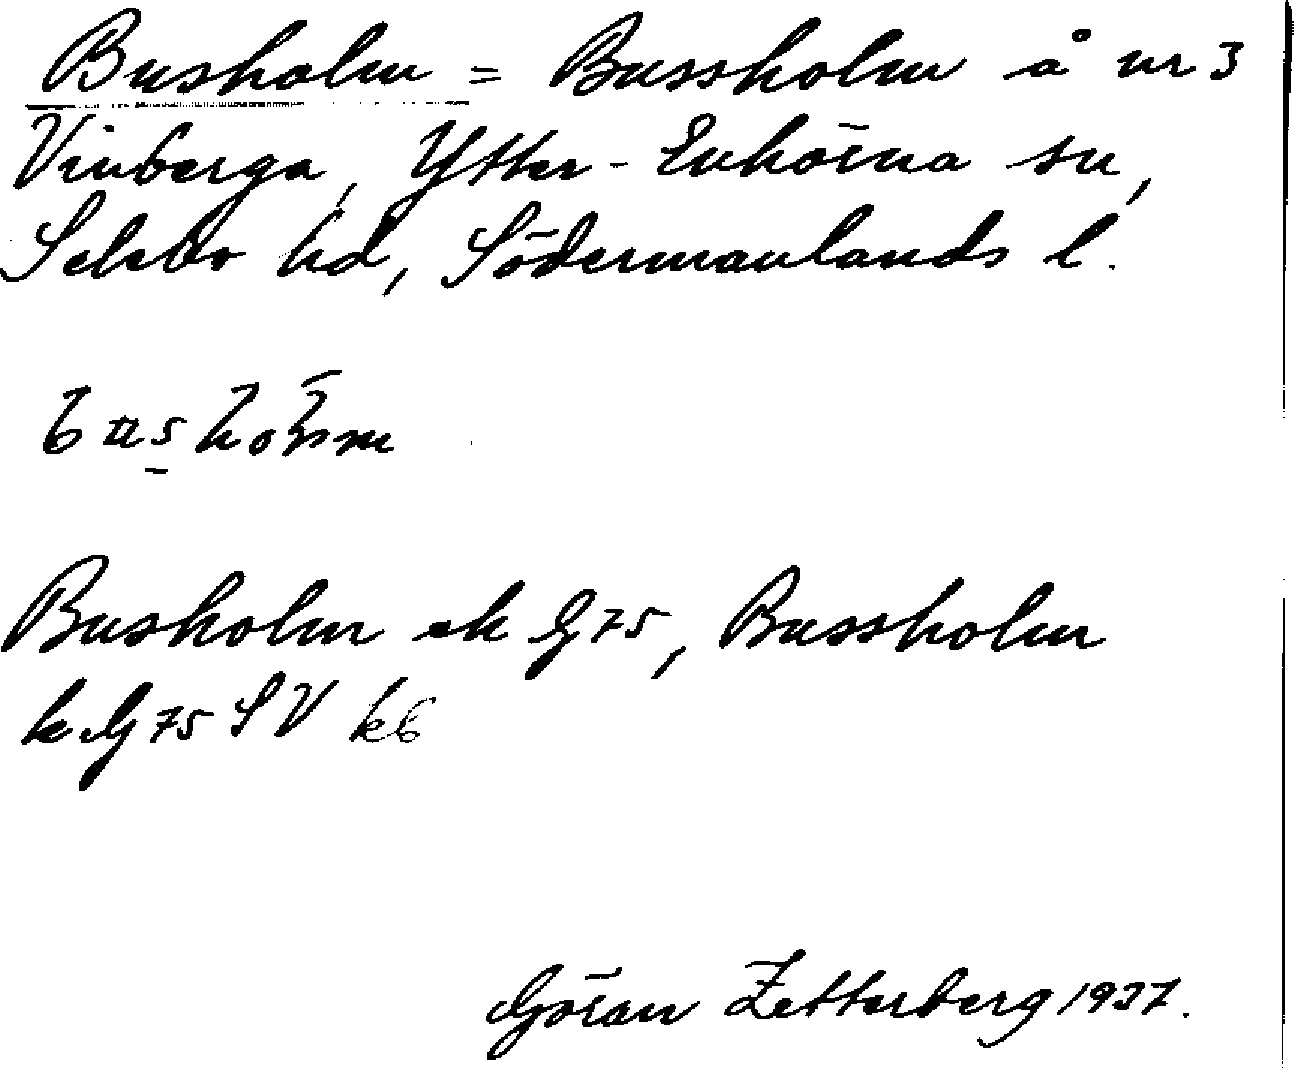 Busholm = Bussholm å nr 3
Vinberga, Ytter-Enhörna sn,
Selebo hd, Södermanlands l.
Busholm ek G 75, Bussholm
k G 75 SV k6
Göran Zetterberg 1937.